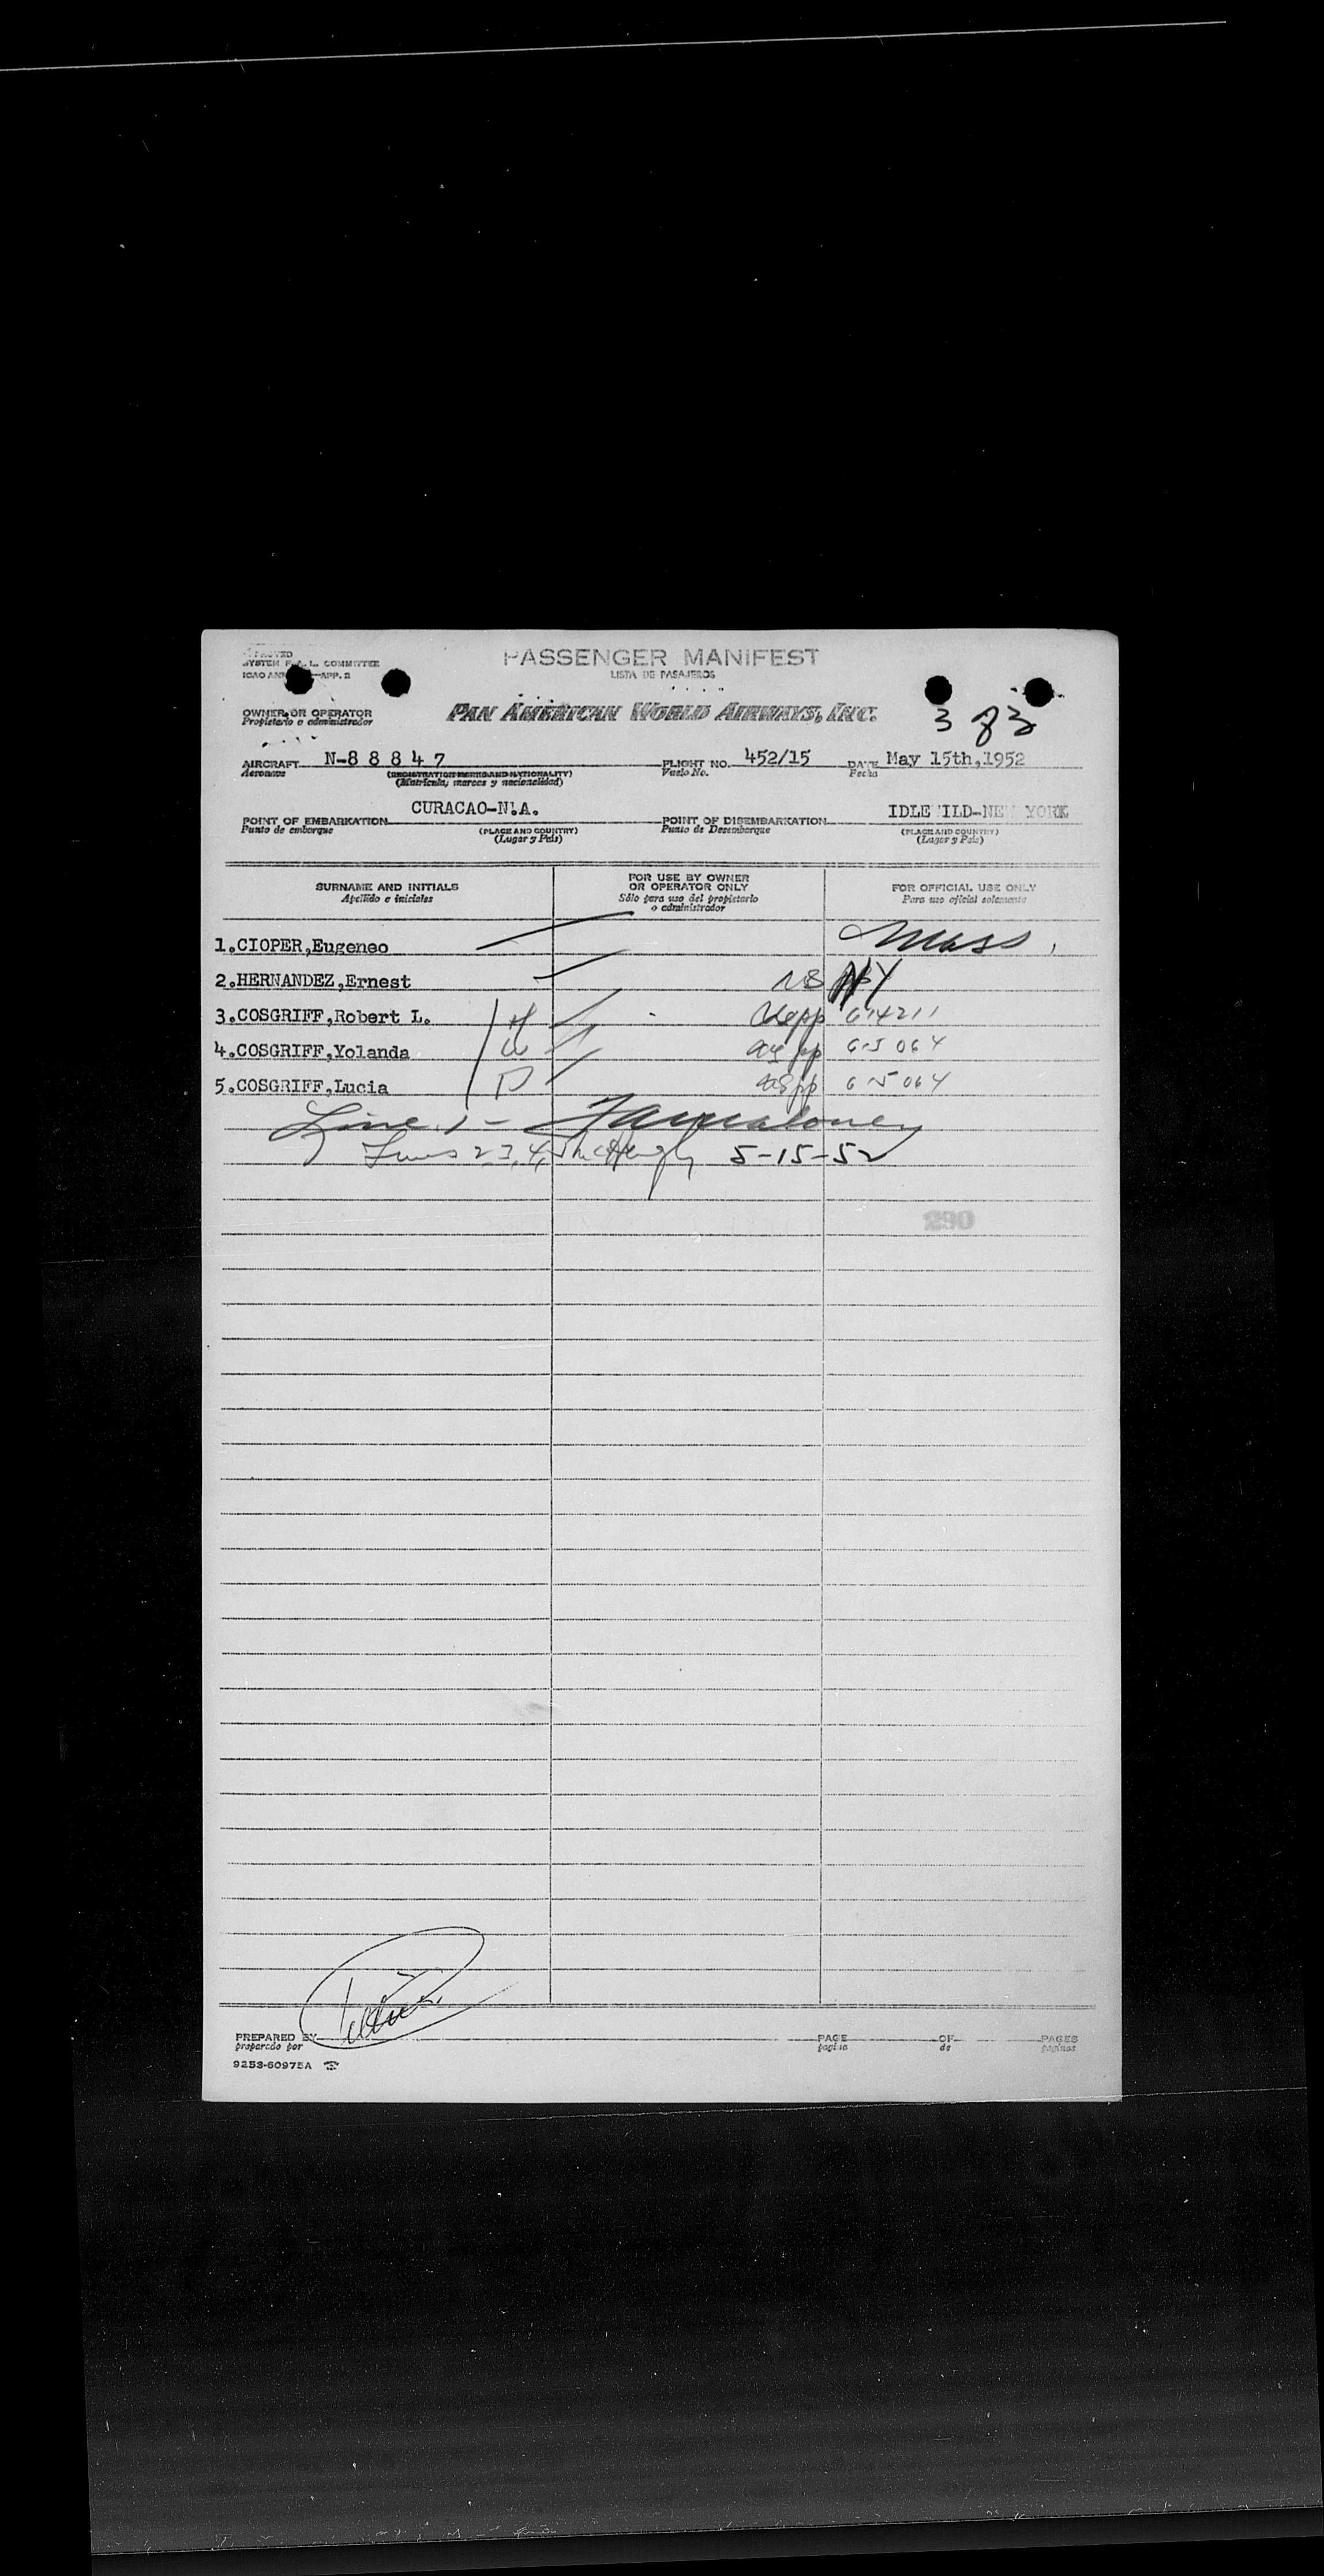 PASSENGER MANIFEST
LISTA DE PASAJEROS
SYSTEM F.A.L. COMMITTEE
ICAO APP. 2
OWNER OR OPERATOR
Propietario o administrador
PAN AMERICAN WORLD AIRWAYS, INC.
3 of 3
AIRCRAFT N-8 8 8 4 7 FLIGHT NO. 452/15 DATE May 15th,1952
Aeronave (REGISTRATION MARKS AND NATIONALITY) Vuelo No. Fecha
(Matrícula, marcas y nacionalidad)
POINT OF EMBARKATION CURACAO-N.A. POINT OF DISEMBARKATION IDLE ILD-NE YORK
Punto de embarque (PLACE AND COUNTRY) Punto de Desembarque (PLACE AND COUNTRY)
(Lugar y País) (Lugar y País)
SURNAME AND INITIALS FOR USE BY OWNER OR OPERATOR ONLY FOR OFFICIAL USE ONLY
Apellido e iniciales Sólo para uso del propietario o administrador Para uso oficial solamente
1.CIOPER,Eugeneo Mass,
2.HERNANDEZ,Ernest NY
3.COSGRIFF,Robert L. H USpp
4.COSGRIFF,Yolanda W pp
5.COSGRIFF,Lucia D USpp
Line 1 -
Lines 2,3,4,5 5-15-52
290
PREPARED BY PAGE OF PAGES
preparado por página de páginas
9253-60975A